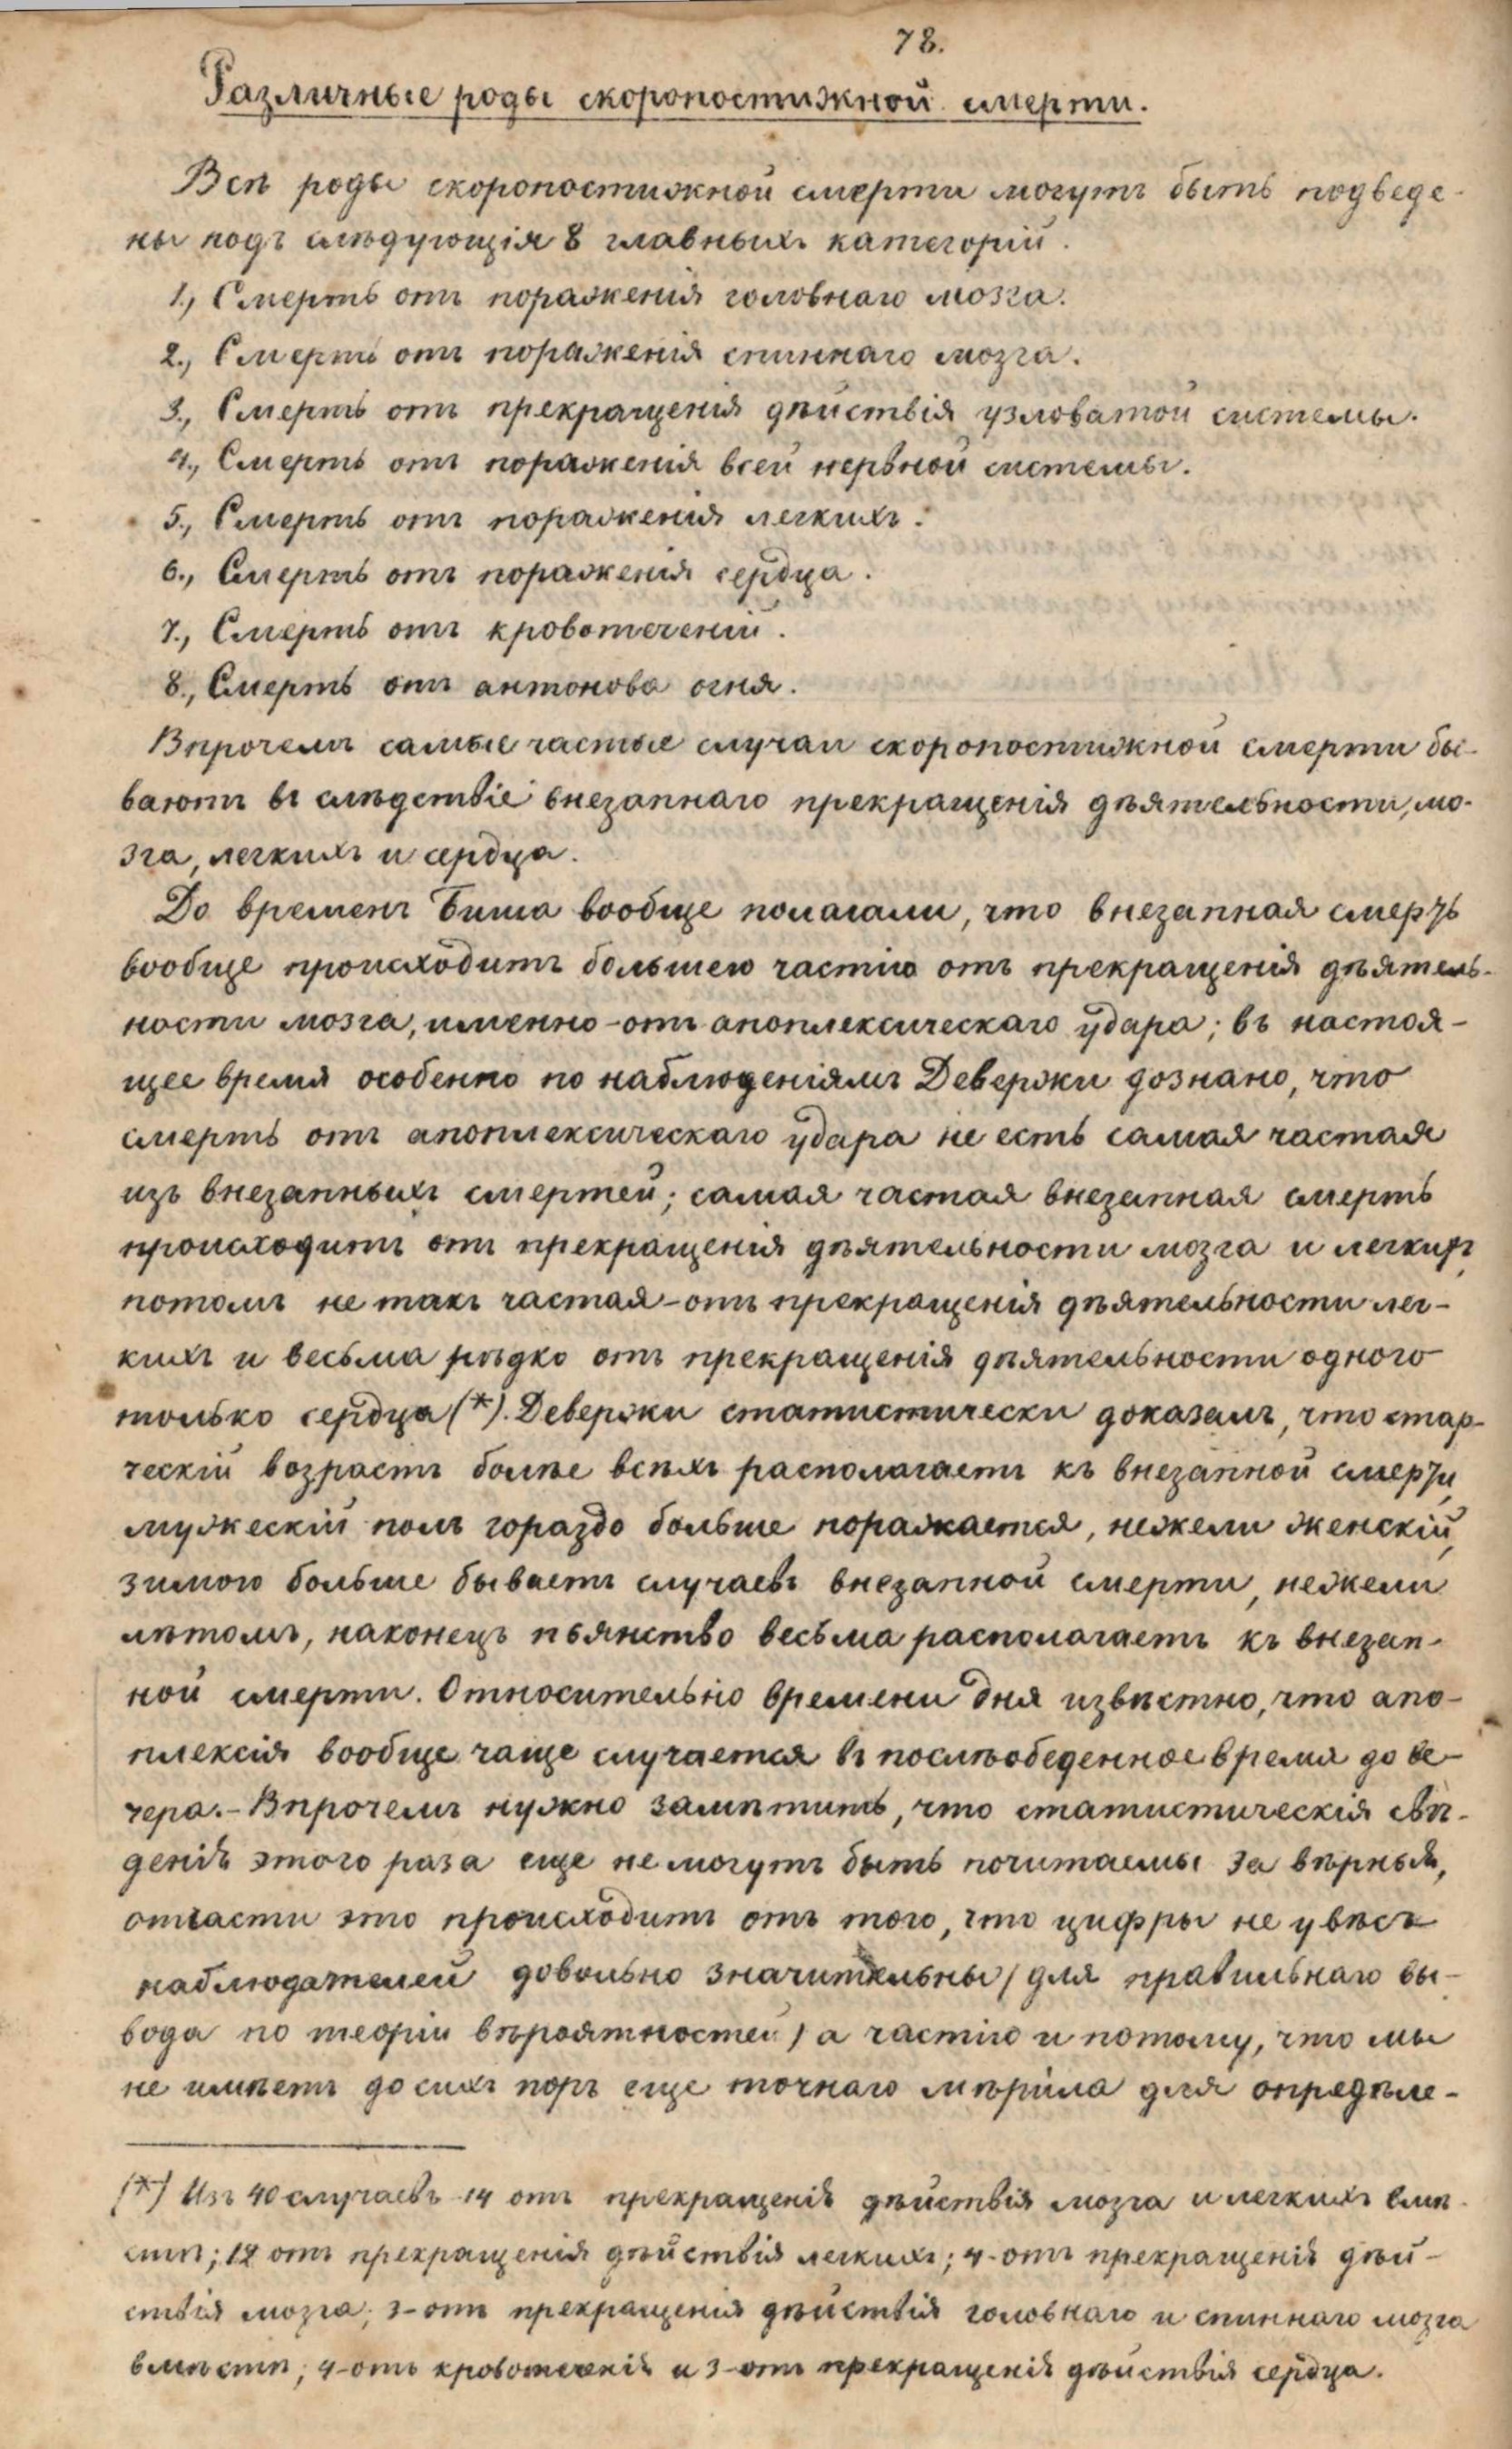 78.
Различные роды скоропостижной смерти.
Всѣ роды скоропостижной смерти могутъ быть подведе-
ны подъ слѣдующія 8 главныхъ категорій.
1., Смерть отъ пораженія головнаго мозга.
2., Смерть отъ пораженія спиннаго мозга.
3., Смерть отъ прекращенія дѣйствія узловатой системы.
4., Смерть отъ пораженія всей нервной системы.
5., Смерть отъ пораженія легкихъ.
6., Смерть отъ пораженія сердца.
7., Смерть отъ кровотеченій.
8., Смерть отъ антонова огня.
Впрочемъ самые частые случаи скоропостижной смерти бы-
ваютъ въ слѣдствіе внезапнаго прекращенія дѣятельности, мо-
зга, легкихъ и сердца.
До временъ Биша вообще полагали, что внезапная смерть
вообще происходитъ большею частію отъ прекращенія дѣятель-
ности мозга, именно-отъ апоплексическаго удара; въ настоя-
щее время особенно по наблюденіямъ Девержи дознано, что
смерть отъ апоплексическаго удара не есть самая частая
изъ внезапныхъ смертей; самая частая внезапная смерть
происходитъ отъ прекращенія дѣятельности мозга и легкихъ,
потомъ не такъ частая-отъ прекращенія дѣятельности лег-
кихъ и весьма рѣдко отъ прекращенія дѣятельности одного
только сердца (*). Девержи статистически доказалъ, что стар-
ческій возрастъ болѣе всѣхъ располагаетъ къ внезапной смерти,
мужескій полъ гораздо больше поражается, нежели женскій,
зимою больше бываетъ случаевъ внезапной смерти, нежели
лѣтомъ, наконецъ пьянство весьма располагаетъ къ внезап-
ной смерти. Относительно времени дня извѣстно, что апо-
плексія вообще чаще случается въ послѣобеденное время до ве-
чера.-Впрочемъ нужно замѣтить, что статистическія свѣ-
денія этого раза еще не могутъ быть почитаемы за вѣрныя,
отчасти это происходитъ отъ того, что цифры не у всѣхъ
наблюдателей довольно значительны (для правильнаго вы-
вода по теоріи вѣроятностей) а частію и потому, что мы
не имѣемъ до сихъ поръ еще точнаго мѣрила для опредѣле-
(*) Изъ 40 случаевъ 14 отъ прекращенія дѣйствія мозга и легкихъ вмѣ-
стѣ; 12 отъ прекращенія дѣйствія легкихъ; 4-отъ прекращенія дѣй-
ствія мозга; 3-отъ прекращенія дѣйствія головнаго и спиннаго мозга
вмѣстѣ; 4-отъ кровотеченія и 3-отъ прекращенія дѣйствія сердца.